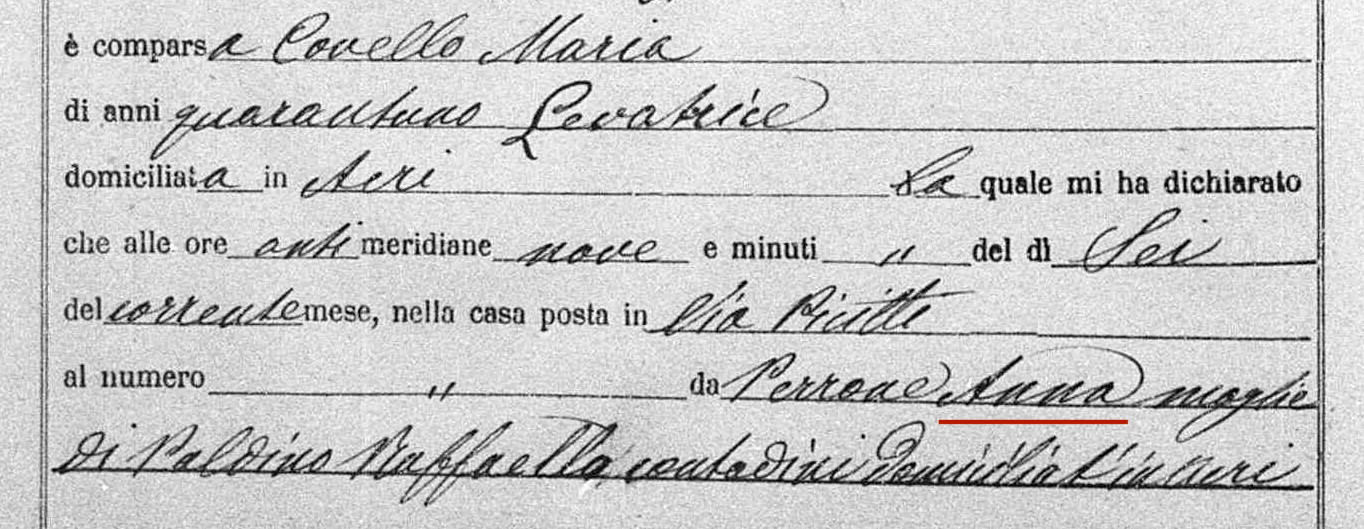 è comparsa Covello Maria
di anni quarantuno Levatrice
domiciliata in Acri La quale mi ha dichiarato
che alle ore antimeridiane nove e minuti " del dì Sei
del corrente mese, nella casa posta in Via
al numero " da Perrone Anna moglie
di Raffaella, contadini domiciliati in Acri